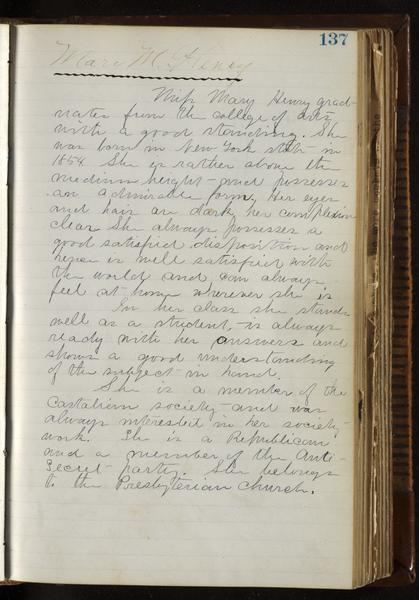 137
Mary M. Henry
Miss Mary Henry grad-
uates from the college of arts
with a good standing. She
was born in New York state in
1854 She is rather above the
medium height and possesses
an admirable form, Her eyes
and hair are dark, her complexion
clear She always possesses a
good satisfied disposition and
is well satisfied with
the world and can always
feel at home wherever she is
In her class she stands
well as a student, is always
ready with her answers and
shows a good understanding
of the subject in hand.
She is a member of the
Castalian society and was
always interested in her society
work. She is a Republican
and a member of the Anti-
Secret party. She belongs
to the Presbyterian Church.